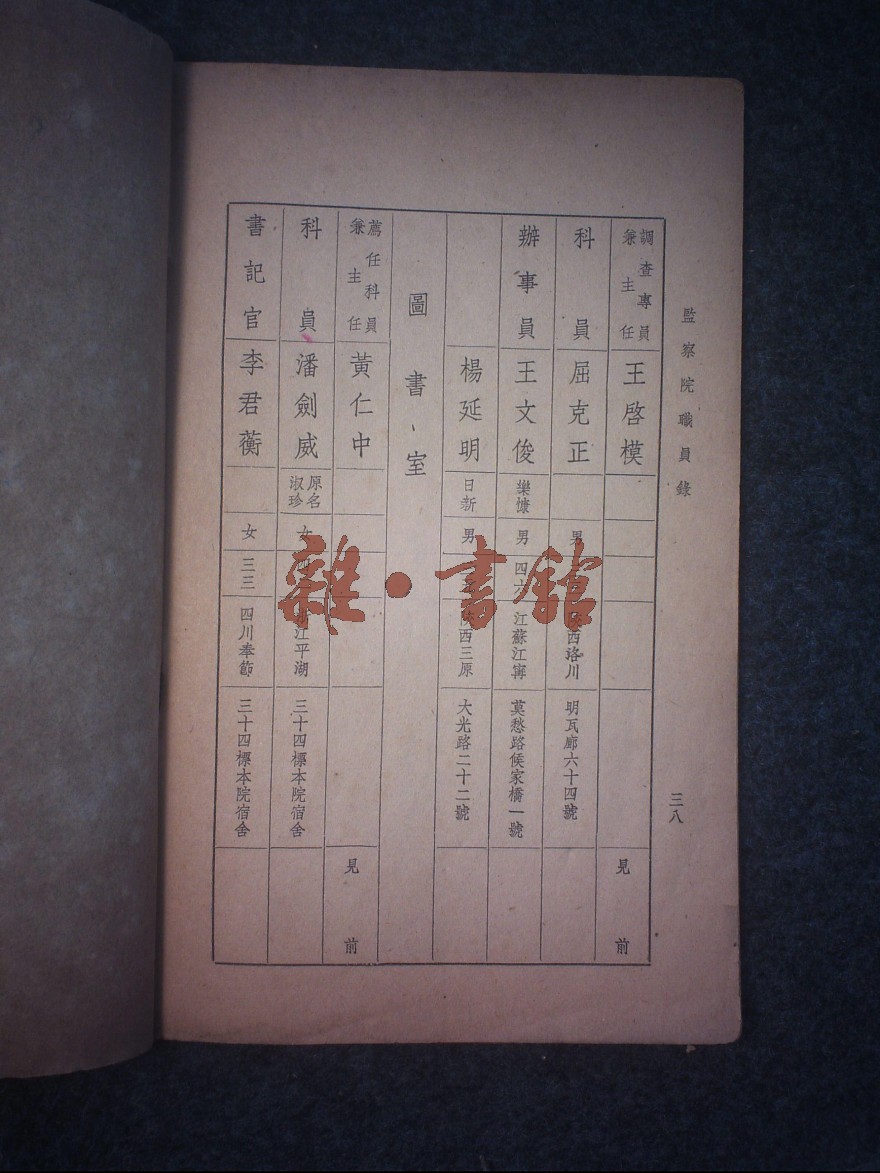 監察院職員錄
三八
調查專員兼主任 王啓模 見前
科員 屈克正 男 陝西洛川 明瓦廊六十四號
辦事員 王文俊 樂慷 男 四六 江蘇江寗 莫愁路侯家橋一號
楊延明 日新 男 陝西三原 大光路二十二號
圖書室
薦任科員兼主任 黃仁中 見前
科員 潘劍威 原名淑珍 女 浙江平湖 三十四標本院宿舍
書記官 李君蘅 女 三三 四川奉節 三十四標本院宿舍
雜·書館